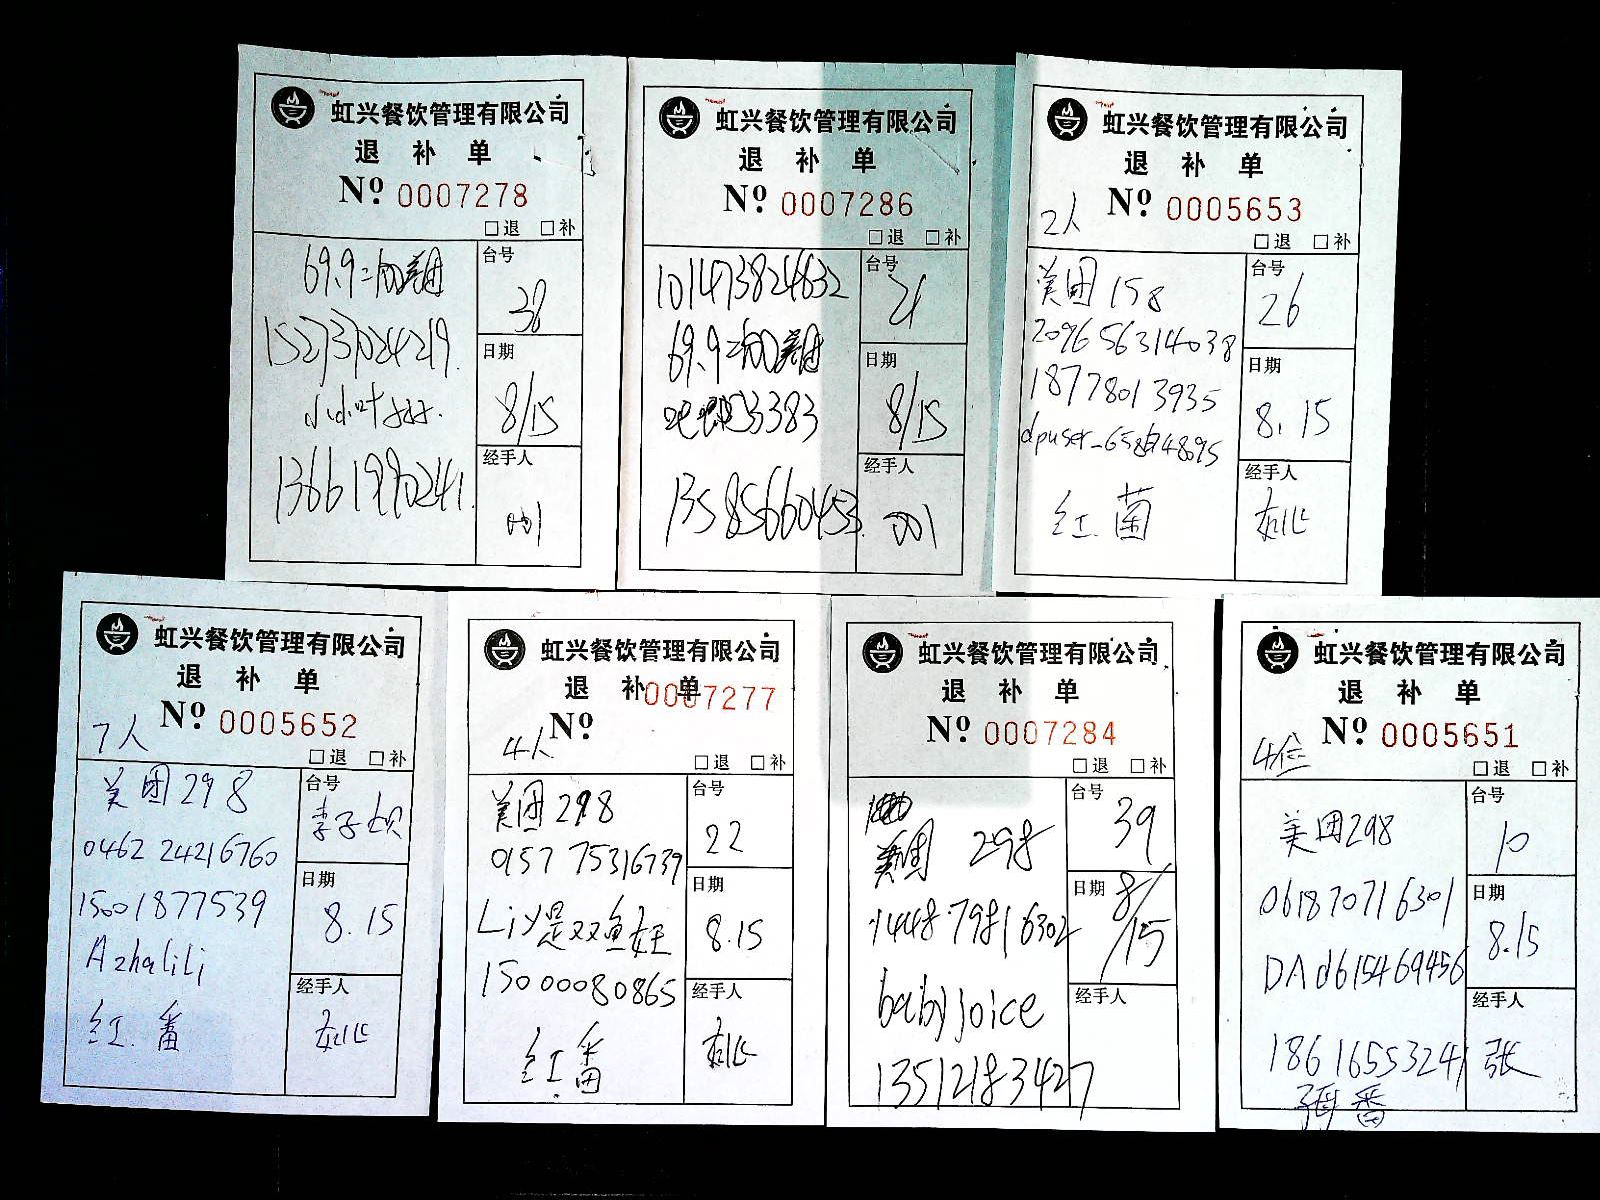 虹兴餐饮管理有限公司
退 补 单
Nº 0007278
□退 □补
69.9=100美团
152737024219
小小叶
13661990241
台号
38
日期
8/15
经手人
001
虹兴餐饮管理有限公司
退 补 单
Nº 0007286
□退 □补
101473824632
69.9=100美团
3383
13585660453
台号
21
日期
8/15
经手人
001
虹兴餐饮管理有限公司
退 补 单
2人 Nº 0005653
□退 □补
美团158
209656314038
18778013935
红.菌
台号
26
日期
8.15
经手人
虹兴餐饮管理有限公司
退 补 单
7人 Nº 0005652
□退 □补
美团298
0462 24216760
15001877539
Azhalili
红.番
台号
日期
8.15
经手人
虹兴餐饮管理有限公司
退 补 单
0007277
4人 Nº
□退 □补
美团298
0157 75316739
Liy是双鱼女王
15000080865
红番
台号
22
日期
8.15
经手人
虹兴餐饮管理有限公司
退 补 单
Nº 0007284
□退 □补
美团 298
1448 79816302
babyjoice
13512183427
台号
39
日期
8/15
经手人
虹兴餐饮管理有限公司
退 补 单
Nº 0005651
□退 □补
美团298
061870716301
DAd615469456
18616553241
番
台号
10
日期
8.15
经手人
张